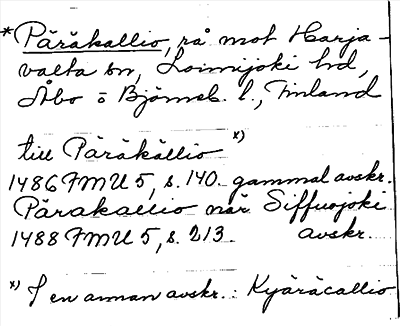 * Päräkallio, rå mot Harja-
valta sn, Loimijoki hd,
Åbo o Björneb. l., Finland
till Päräkällio x)
1486 FMU 5, s. 140. gammal avskr.
Pärakallio när Siffuojoki
1488 FMU 5, s. 213. avskr.
x) I en annan avskr.: Kyäräcallio